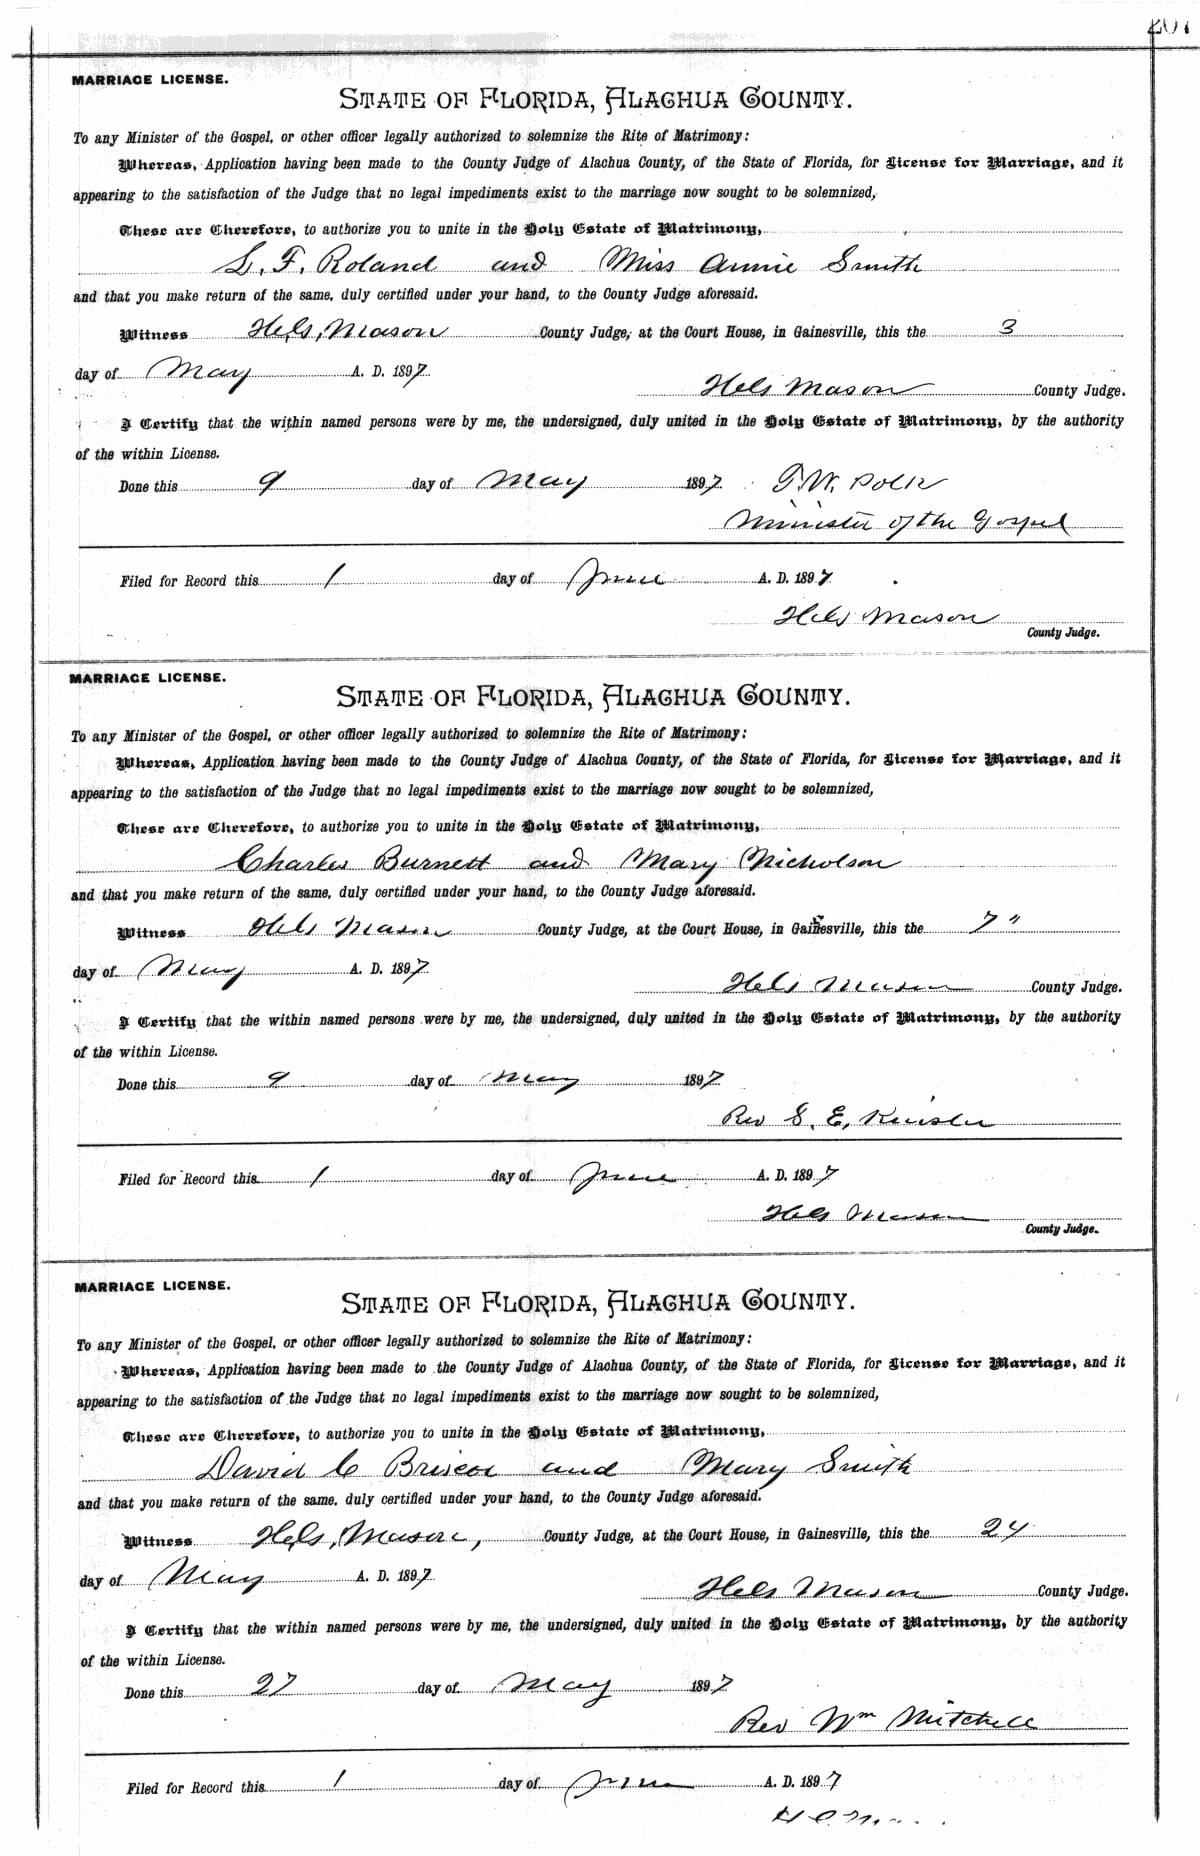 207
MARRIAGE LICENSE.
STATE OF FLORIDA, ALACHUA COUNTY.
To any Minister of the Gospel, or other officer legally authorized to solemnize the Rite of Matrimony:
Whereas, Application having been made to the County Judge of Alachua County, of the State of Florida, for License for Marriage, and it
appearing to the satisfaction of the Judge that no legal impediments exist to the marriage now sought to be solemnized,
These are Therefore, to authorize you to unite in the Holy Estate of Matrimony,
L. F. Roland and Miss Annie Smith
and that you make return of the same, duly certified under your hand, to the County Judge aforesaid.
Witness Mason County Judge, at the Court House, in Gainesville, this the 3
day of May A. D. 1897
Mason County Judge.
I Certify that the within named persons were by me, the undersigned, duly united in the Holy Estate of Matrimony, by the authority
of the within License.
Done this 9 day of May 1897 W. Polk
Minister of the Gospel
Filed for Record this 1 day of June A. D. 1897
Mason
County Judge.
MARRIAGE LICENSE.
STATE OF FLORIDA, ALACHUA COUNTY.
To any Minister of the Gospel, or other officer legally authorized to solemnize the Rite of Matrimony:
Whereas, Application having been made to the County Judge of Alachua County, of the State of Florida, for License for Marriage, and it
appearing to the satisfaction of the Judge that no legal impediments exist to the marriage now sought to be solemnized,
These are Therefore, to authorize you to unite in the Holy Estate of Matrimony,
Charles Burnett and Mary Nicholson
and that you make return of the same, duly certified under your hand, to the County Judge aforesaid.
Witness Mason County Judge, at the Court House, in Gainesville, this the 7"
day of May A. D. 1897
Mason County Judge.
I Certify that the within named persons were by me, the undersigned, duly united in the Holy Estate of Matrimony, by the authority
of the within License.
Done this 9 day of May 1897
Rev S. E.
Filed for Record this 1 day of June A. D. 1897
Mason
County Judge.
MARRIAGE LICENSE.
STATE OF FLORIDA, ALACHUA COUNTY.
To any Minister of the Gospel, or other officer legally authorized to solemnize the Rite of Matrimony:
Whereas, Application having been made to the County Judge of Alachua County, of the State of Florida, for License for Marriage, and it
appearing to the satisfaction of the Judge that no legal impediments exist to the marriage now sought to be solemnized,
These are Therefore, to authorize you to unite in the Holy Estate of Matrimony,
David C Briscoe and Mary Smith
and that you make return of the same, duly certified under your hand, to the County Judge aforesaid.
Witness Mason, County Judge, at the Court House, in Gainesville, this the 24
day of May A. D. 1897
Mason County Judge.
I Certify that the within named persons were by me, the undersigned, duly united in the Holy Estate of Matrimony, by the authority
of the within License.
Done this 27 day of May 1897
Rev Wm Mitchell
Filed for Record this 1 day of June A. D. 1897